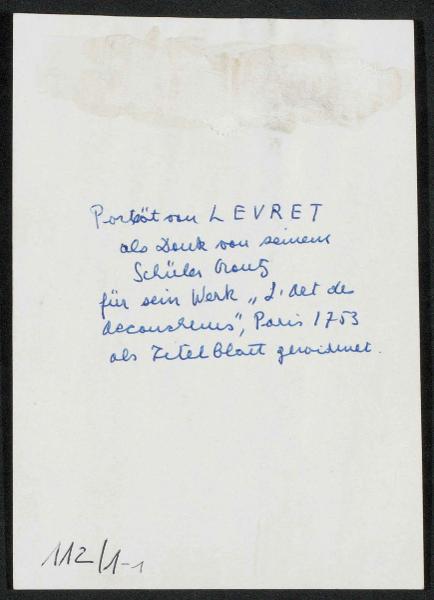 Porträt von LEVRET
als Dank von seinem
Schüler Crantz
für sein Werk „L'Art de
accouchems", Paris 1753
als Titelblatt gewidmet.
112/1-1